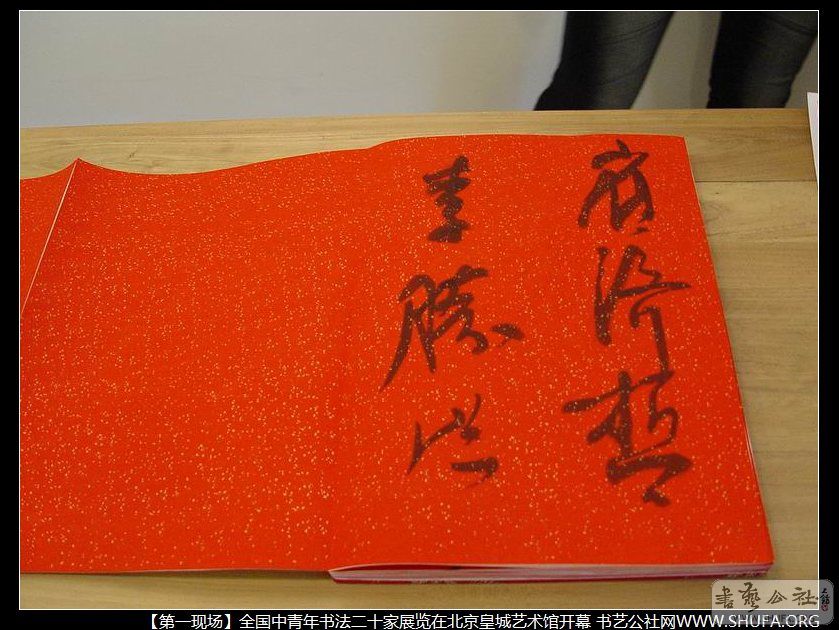 济哲
李勝洪
書藝公社
【第一现场】全国中青年书法二十家展览在北京皇城艺术馆开幕 书艺公社网WWW.SHUFA.ORG